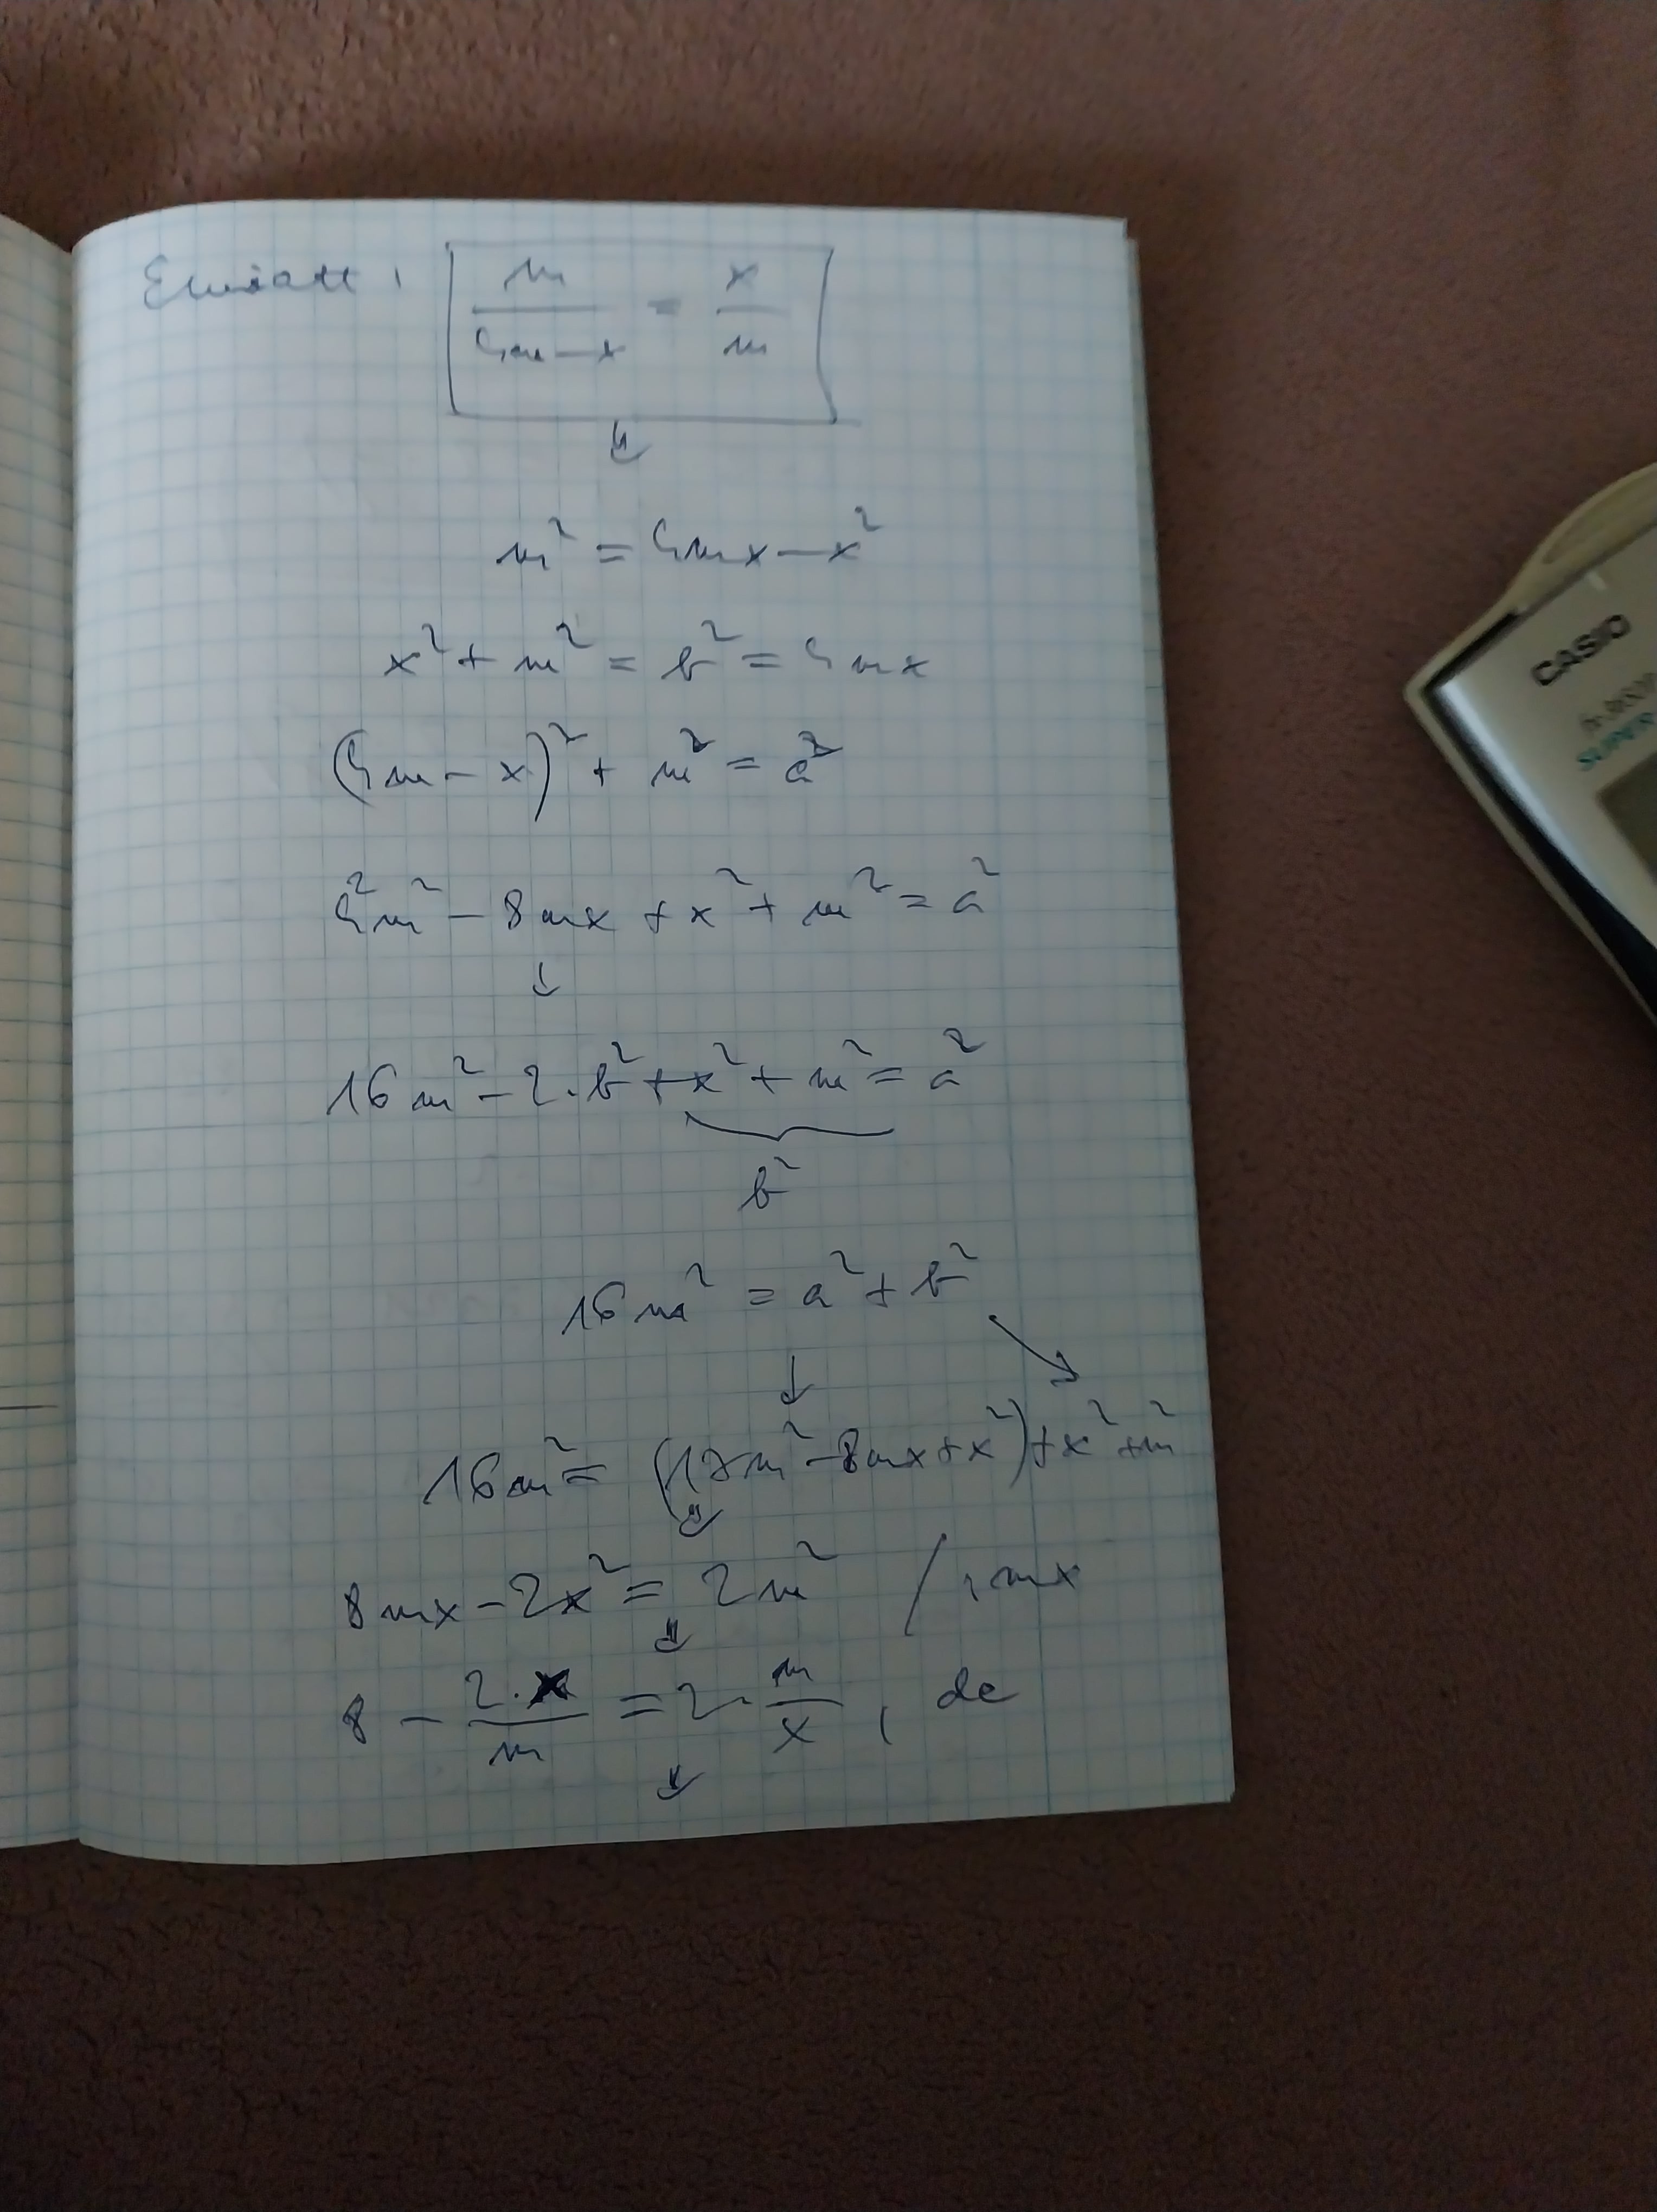 Emiatt : m/(4m-x) = x/m
m² = 4mx - x²
x² + m² = b² = 4mx
(4m - x)² + m² = a²
4²m² - 8mx + x² + m² = a²
↓
16m² - 2·b² + x² + m² = a²
b²
16m² = a² + b²
↓
16m² = (17m² - 8mx + x²) + x² + m²
8mx - 2x² = 2m² / : mx
8 - 2·x/m = 2·m/x , de
CASIO